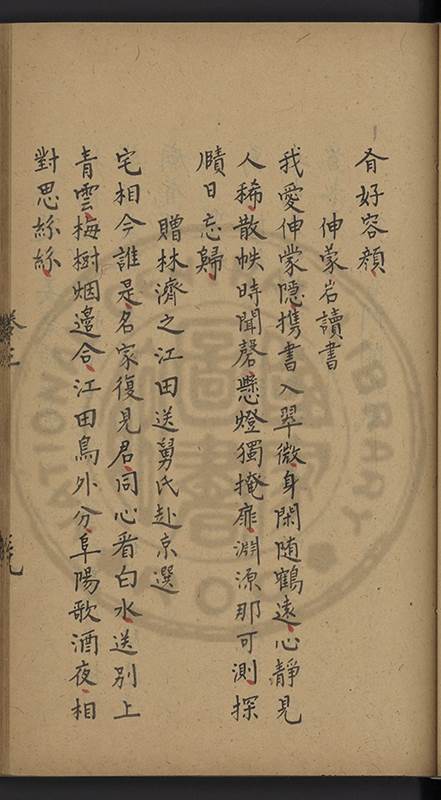 肴好容顏
伸蒙岩讀書
我愛伸蒙隠携書入翠微身閑随鶴遠心靜見
人稀散帙時聞磬懸燈獨掩扉淵源那可測探
賾日忘歸
贈林濟之江田送舅氏赴京選
宅相今誰是名家復見君同心看白水送別上
青雲梅樹烟邊合江田鳥外分阜陽歌酒夜相
對思絲絲